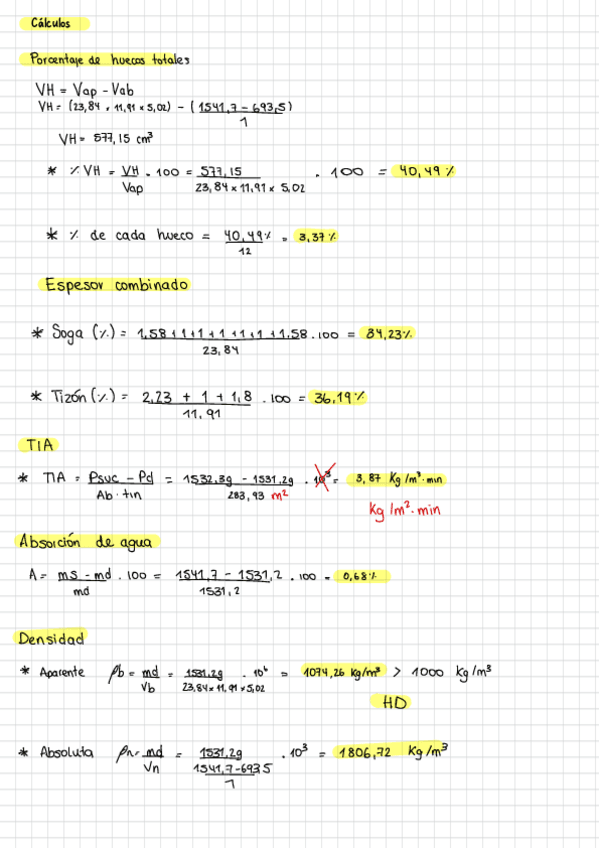 Cálculos
Porcentaje de huecos totales
VH = Vap - Vab
VH = (23,84 x 11,91 x 5,02) - (1541,7 - 693,5 / 1)
VH = 577,15 cm³
* % VH = VH / Vap · 100 = 577,15 / 23,84 x 11,91 x 5,02 · 100 = 40,49 %
* % de cada hueco = 40,49% / 12 = 3,37 %
Espesor combinado
* Soga (%) = 1,58 + 1 + 1 + 1 + 1 + 1 + 1,58 / 23,84 · 100 = 34,23%
* Tizón (%) = 2,23 + 1 + 1,8 / 11,91 · 100 = 36,19 %
TIA
* TIA = Psuc - Pd / Ab · tin = 1532,3g - 1531,2g / 283,93 m² · 10³ = 3,87 Kg/m³·min
Kg/m²·min
Absorción de agua
A = ms - md / md · 100 = 1541,7 - 1531,2 / 1531,2 · 100 = 0,68%
Densidad
* Aparente ρb = md / Vb = 1531,2g / 23,84 x 11,91 x 5,02 · 10⁶ = 1074,26 kg/m³ > 1000 kg/m³
HD
* Absoluta ρn = md / Vn = 1531,2g / 1541,7 - 693,5 / 1 · 10³ = 1806,72 kg/m³